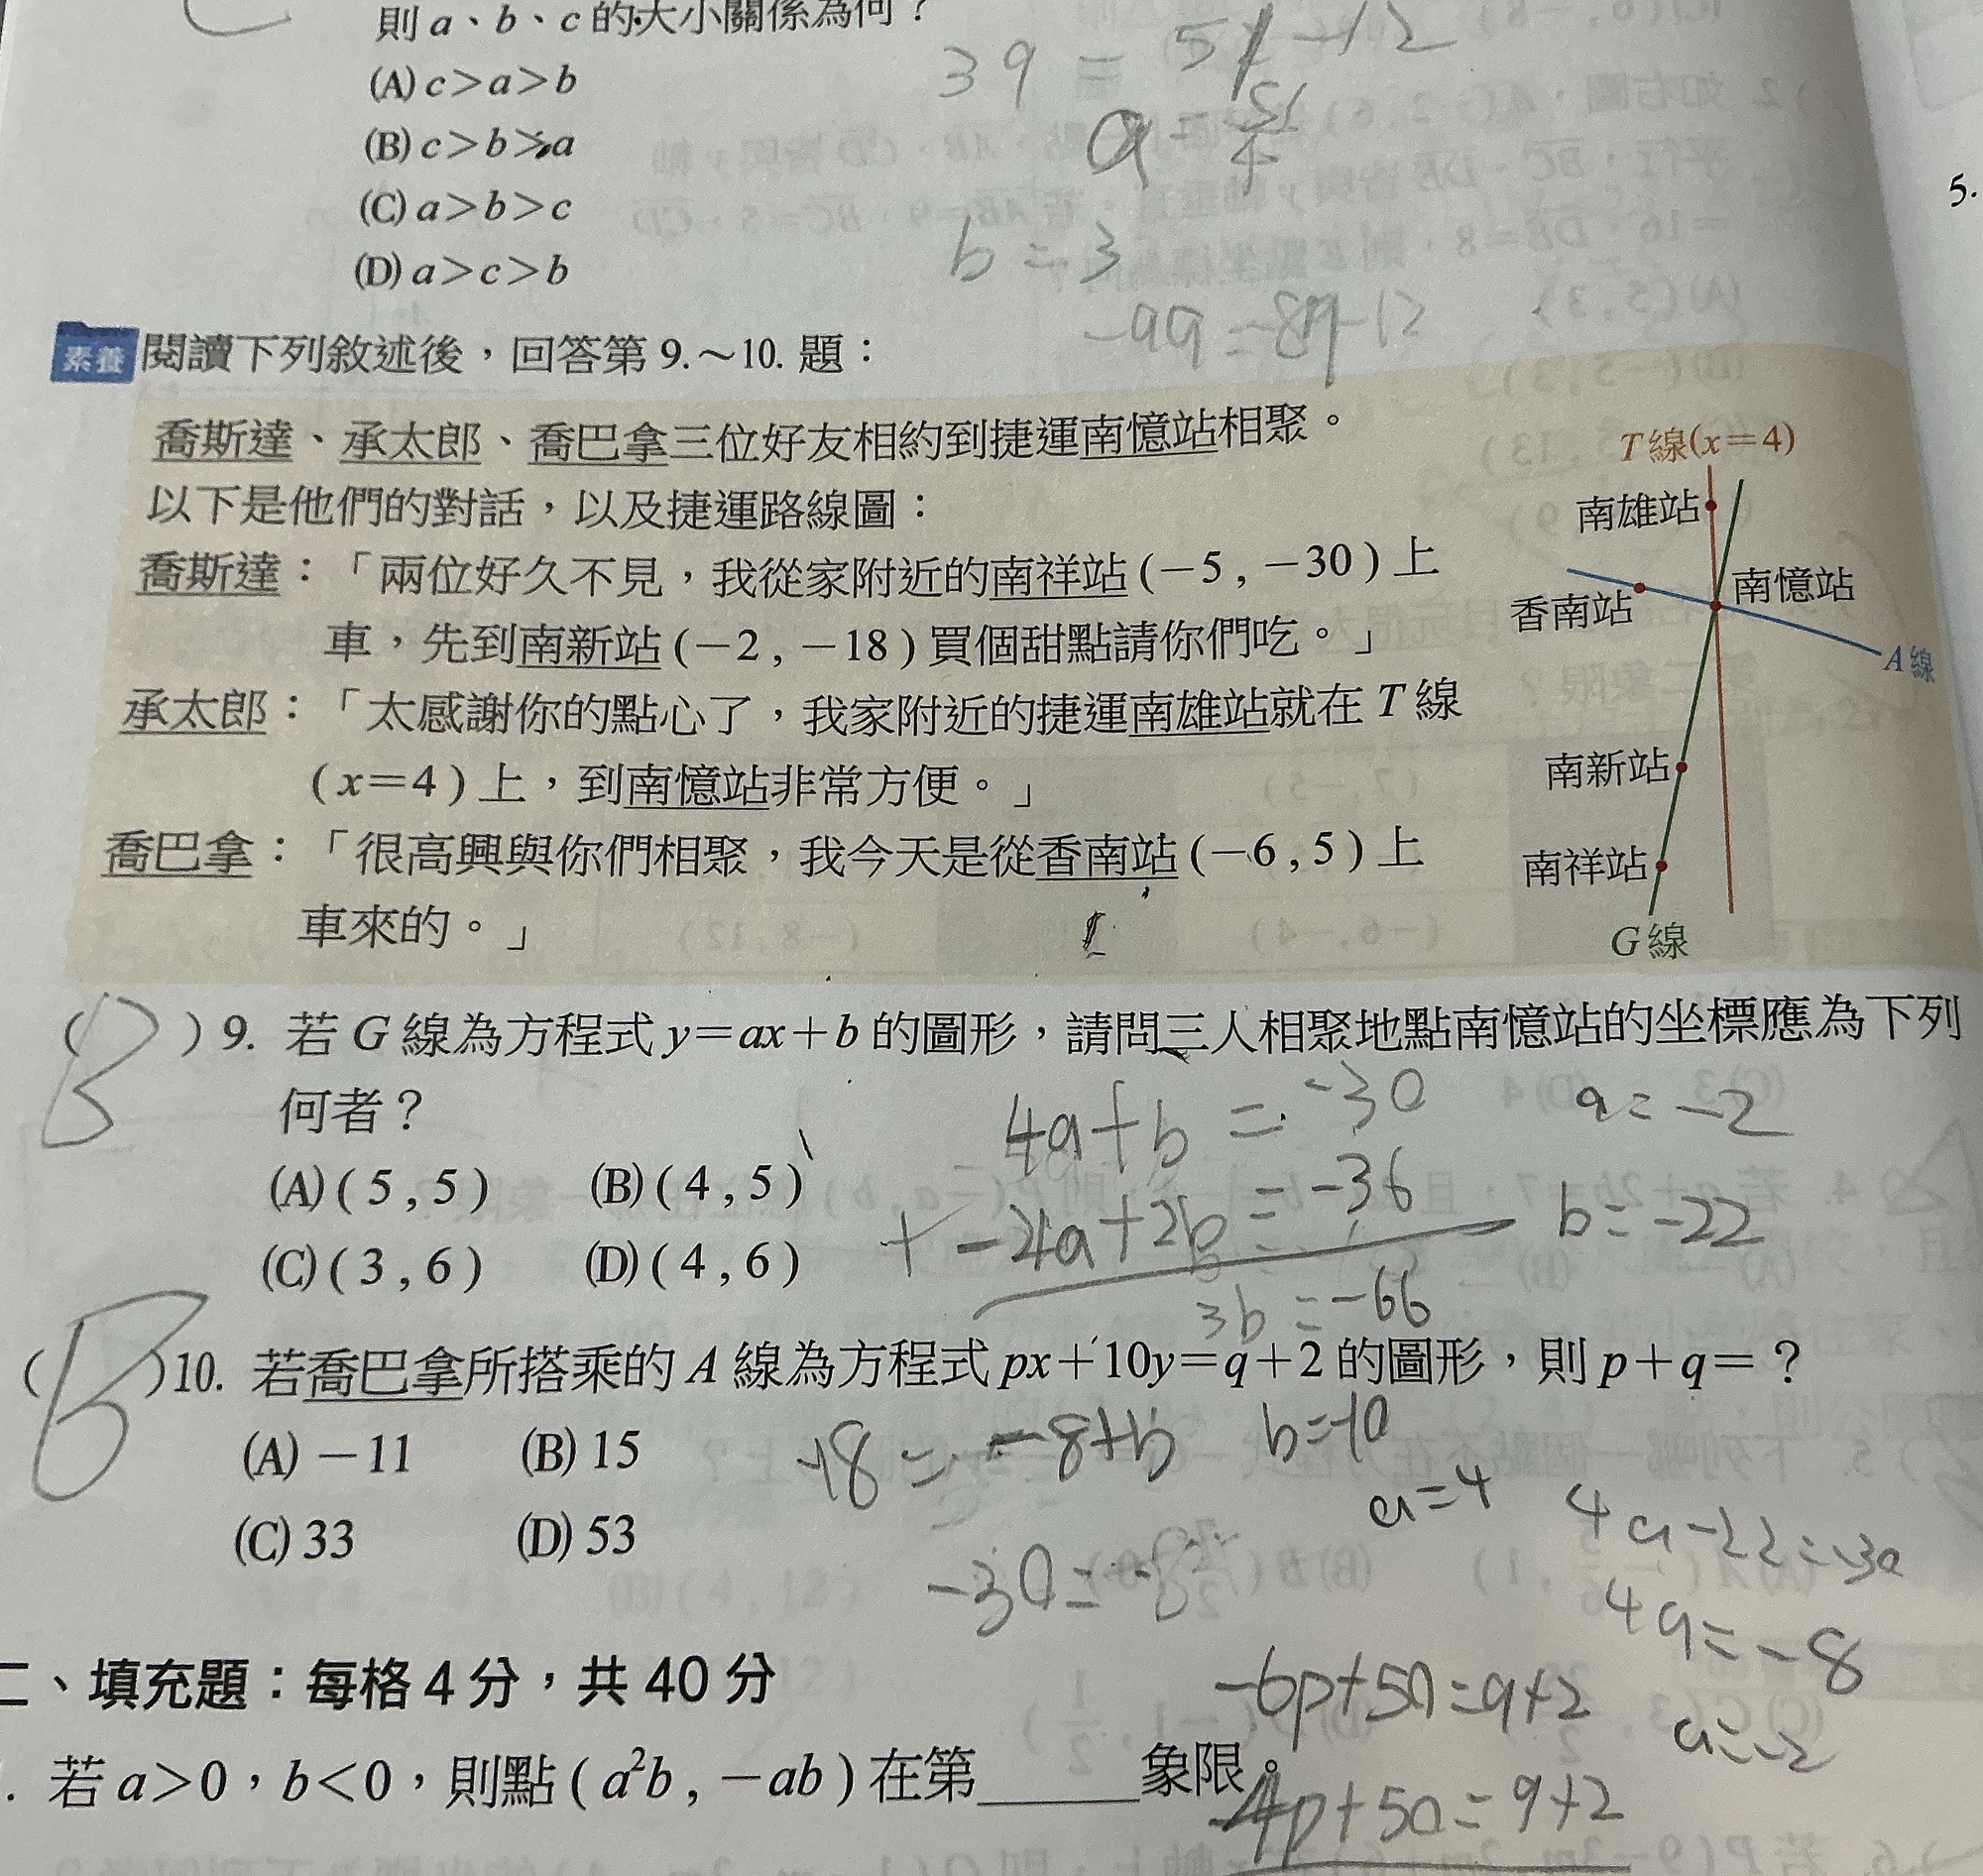 則 a、b、c 的大小關係為何？
(A) c>a>b
(B) c>b>a
(C) a>b>c
(D) a>c>b
39 =
b = 3
5.
素養 閱讀下列敘述後，回答第 9.～10. 題：
喬斯達、承太郎、喬巴拿三位好友相約到捷運南憶站相聚。
以下是他們的對話，以及捷運路線圖：
喬斯達：「兩位好久不見，我從家附近的南祥站(−5 , −30)上
車，先到南新站(−2 , −18)買個甜點請你們吃。」
承太郎：「太感謝你的點心了，我家附近的捷運南雄站就在 T 線
(x=4)上，到南憶站非常方便。」
喬巴拿：「很高興與你們相聚，我今天是從香南站(−6 , 5)上
車來的。」
T 線(x=4)
南雄站
南憶站
香南站
A 線
南新站
南祥站
G 線
(B) 9. 若 G 線為方程式 y=ax+b 的圖形，請問三人相聚地點南憶站的坐標應為下列
何者？
(A)( 5 , 5 ) (B)( 4 , 5 )
(C)( 3 , 6 ) (D)( 4 , 6 )
4a+b = -30
a = -2
+ -4a+2b = -36
b = -22
3b = -66
(B)10. 若喬巴拿所搭乘的 A 線為方程式 px+10y=q+2 的圖形，則 p+q=？
(A) −11 (B) 15
(C) 33 (D) 53
-18 = -8+b
b=-10
a=4
4a-22=-30
4a=-8
a=-2
二、填充題：每格 4 分，共 40 分
. 若 a>0，b<0，則點 ( a²b , −ab ) 在第______象限。
-6p+50=q+2
4p+50=q+2